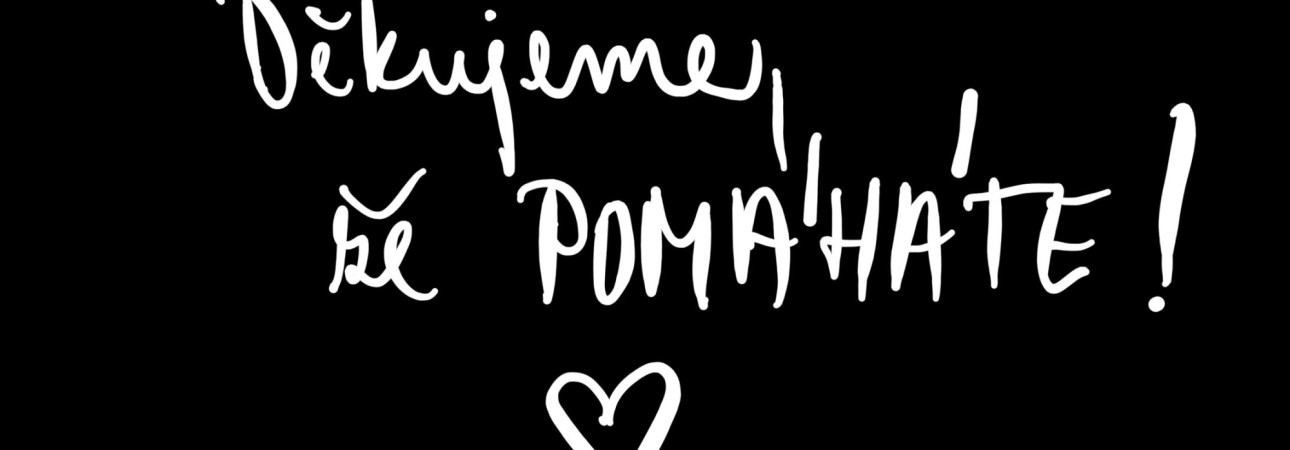 Děkujeme,
že POMÁHÁTE!